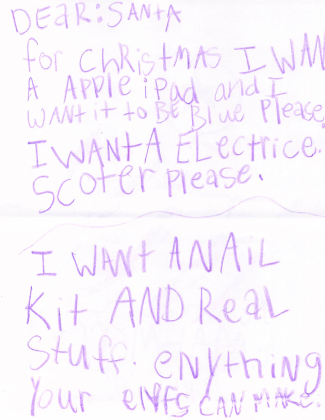 DEAR:SANtA
for CHRistMAS I WAN
A APPLE iPad and I
WANt it to BE Blue Please,
I WANt A ELectrice.
SCOTER Please.
I WANt A NAiL
Kit AND ReaL
Stuff. ENything
Your eNFS CAN MAKE.